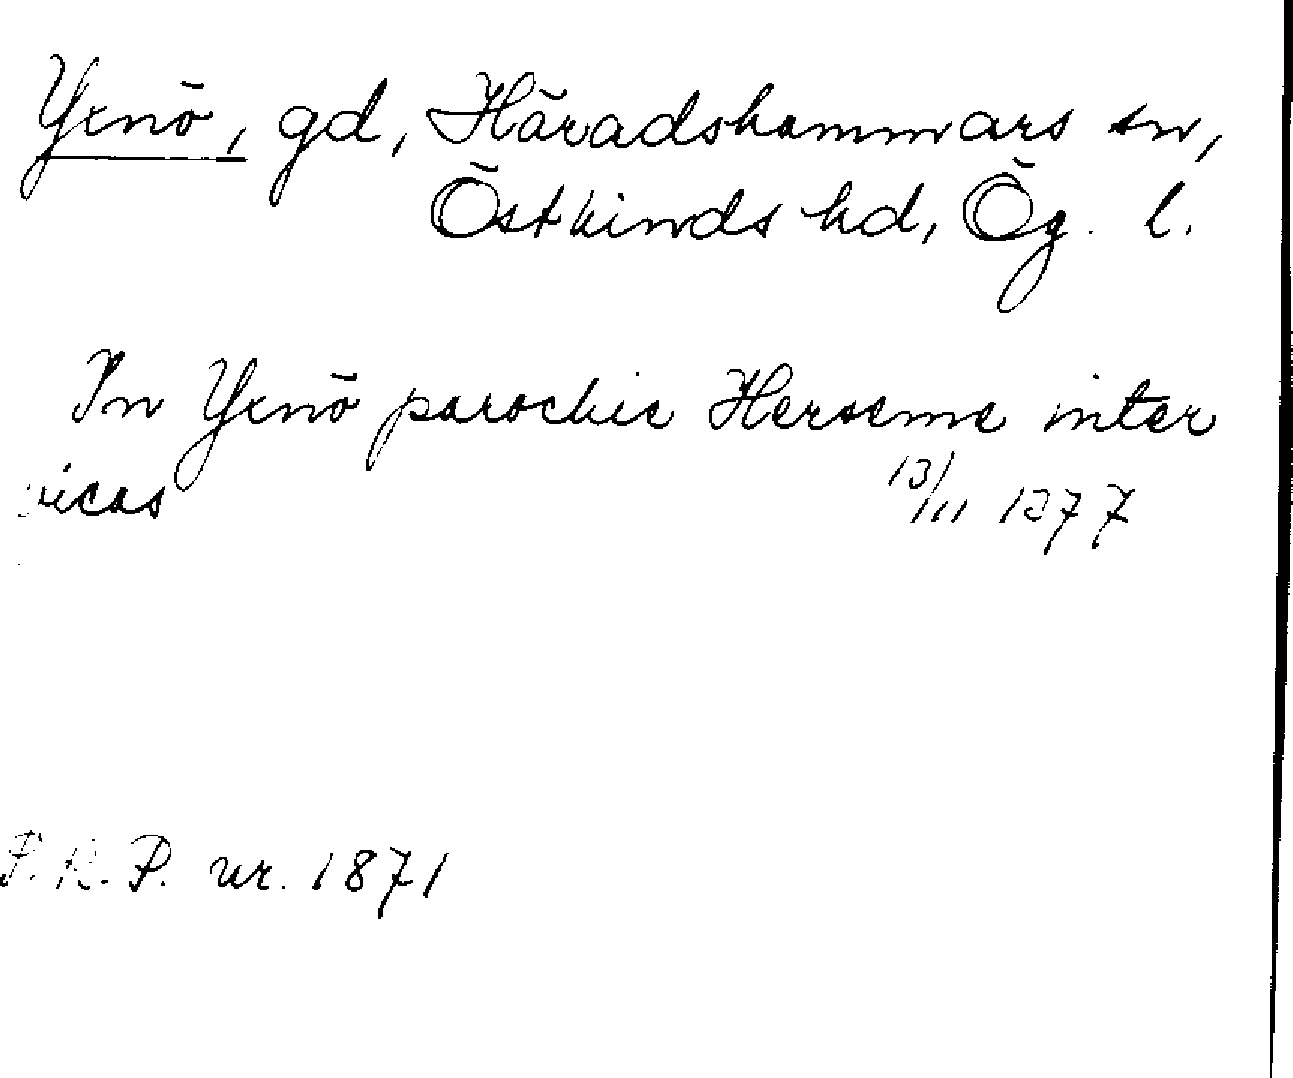 Yxnö, gd, Häradshammars sn,
Östkinds hd, Ög. l.
In Yxnö parochie Herseme inter
vicas 13/11 1377
P.R.P. nr. 1871